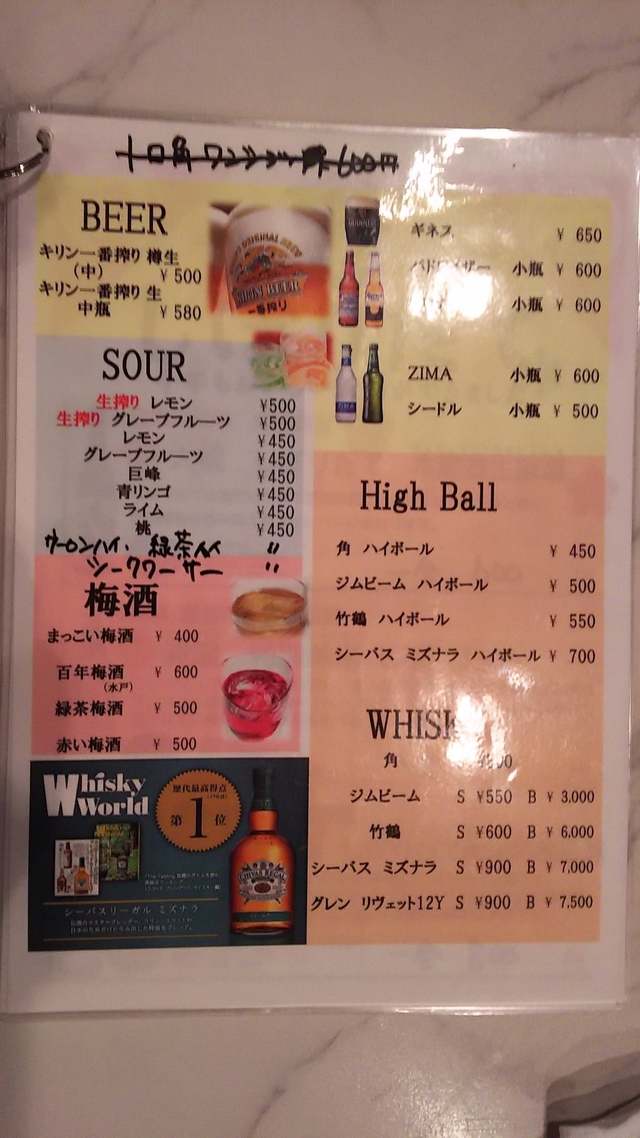 BEER
キリン一番搾り 樽生
(中) ¥ 500
キリン一番搾り 生
中瓶 ¥ 580
KIRIN BEER
一番搾り
GUINNESS
ギネス ¥ 650
バドワイザー 小瓶 ¥ 600
小瓶 ¥ 600
ZIMA 小瓶 ¥ 600
シードル 小瓶 ¥ 500
SOUR
生搾り レモン ¥500
生搾り グレープフルーツ ¥500
レモン ¥450
グレープフルーツ ¥450
巨峰 ¥450
青リンゴ ¥450
ライム ¥450
桃 ¥450
ウーロンハイ、緑茶ハイ 〃
シークワーサー 〃
梅酒
まっこい梅酒 ¥ 400
百年梅酒 ¥ 600
(水戸)
緑茶梅酒 ¥ 500
赤い梅酒 ¥ 500
High Ball
角 ハイボール ¥ 450
ジムビーム ハイボール ¥ 500
竹鶴 ハイボール ¥ 550
シーバス ミズナラ ハイボール ¥ 700
WHISK
角
ジムビーム S ¥550 B ¥ 3,000
竹鶴 S ¥600 B ¥ 6,000
シーバス ミズナラ S ¥900 B ¥ 7,000
グレン リヴェット12Y S ¥900 B ¥ 7,500
Whisky World
歴代最高得点
第1位
CHIVAS REGAL
シーバスリーガル ミズナラ